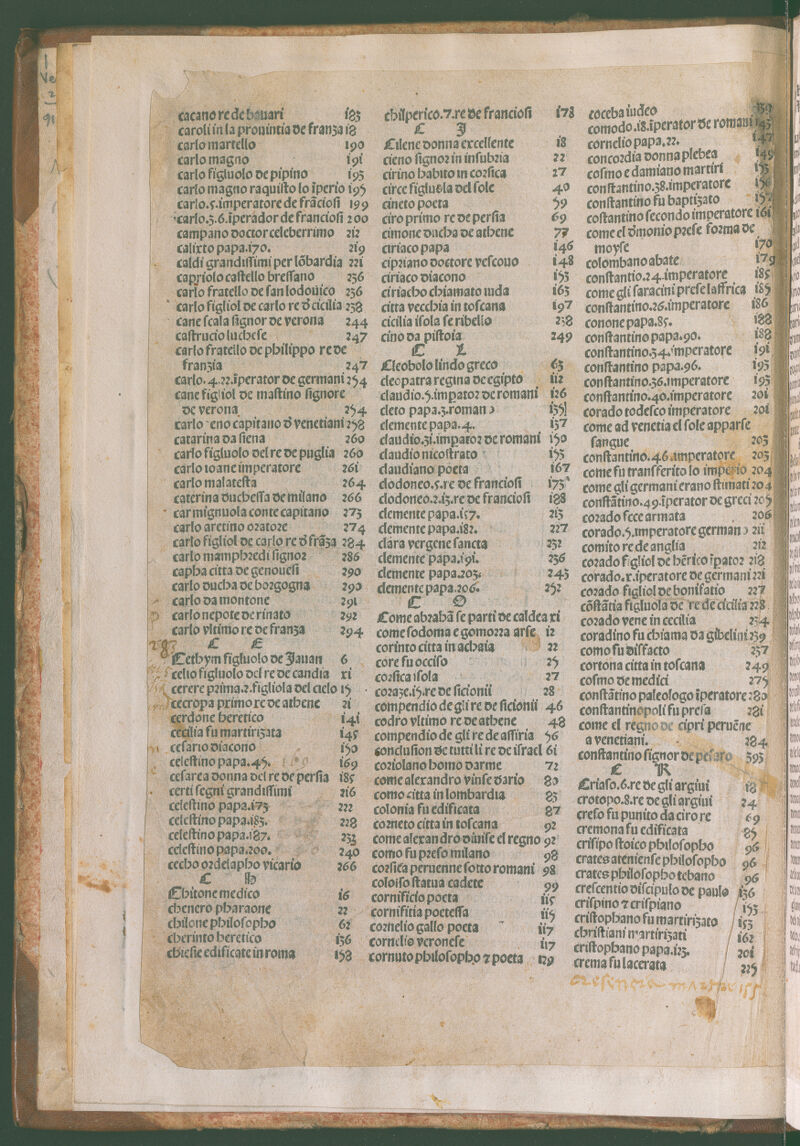 cacano re de bauari 183
caroli in la prouintia de franza 18
carlo martello 190
carlo magno 191
carlo figluolo de pipino 193
carlo magno raquisto lo īperio 195
carlo.5.imperatore de frāciosi 199
carlo.3.6.īperador de franciosi 200
campano doctor celeberrimo 212
calixto papa.170. 219
caldi grandissimi per lōbardia 221
capriolo castello bressano 236
carlo fratello de san lodouico 236
carlo figliol de carlo re đ cicilia 238
cane scala signor de verona 244
castrucio luchese 247
carlo fratello de philippo re de
franzia 247
carlo.4.22.īperator de germani 254
cane figliol de mastino signore
de verona 254
carlo eno capitano đ venetiani 258
catarina da siena 260
carlo figluolo del re de puglia 260
carlo ioane imperatore 261
carlo malatesta 264
caterina duchessa de milano 266
carmignuola conte capitano 273
carlo aretino oratore 274
carlo figliol de carlo re đ frāza 284
carlo mamphredi signor 286
capha citta de genouesi 290
carlo ducha de borgogna 290
carlo da montone 291
carlo nepote de rinato 292
carlo vltimo re de franza 294
C E
Cethym figluolo de Jauan 6
celio figluolo del re de candia xi
cerere prima.2.figliola del cielo 15
cecropa primo re de athene 21
cerdone heretico 141
cecilia fu martirizata 145
cesario diacono 150
celestino papa.45. 169
cesarea donna del re de persia 185
certi segni grandissimi 216
celestino papa.173 222
celestino papa.183. 228
celestino papa.187. 232
celestino papa.200. 240
cecho ordelapho vicario 266
C H
Chitone medico 16
chenero pharaone 22
chilone philosopho 62
cherinto heretico 136
chiesie edificate in roma 158
chilperico.7.re de franciosi 178
C I
Cilene donna excellente 18
cieno signor in insubria 22
cirino habito in corsica 27
circe figluola del sole 40
cineto poeta 59
ciro primo re de persia 69
cimone ducha de athene 77
ciriaco papa 146
cipriano doctore vescouo 148
ciriaco diacono 153
ciriacho chiamato iuda 163
citta vecchia in toscana 197
cicilia isola se ribelio 238
cino da pistoia 249
C L
Cleobolo lindo greco 63
cleopatra regina de egipto 112
claudio.5.impator de romani 126
cleto papa.3.romano 135
clemente papa.4. 137
claudio.31.impator de romani 150
claudio nicostrato 153
claudiano poeta 167
clodoneo.5.re de franciosi 173
clodoneo.2.13.re de franciosi 188
clemente papa.157. 213
clemente papa.182. 227
clara vergene sancta 232
clemente papa.191. 236
clemente papa.203. 245
clemente papa.206. 252
C O
Come abrahā se parti de caldea xi
come sodoma e gomorra arse 12
corinto citta in achaia 22
core fu occiso 25
corsica isola 27
coraze.15.re de sicionii 28
compendio de gli re de sicionii 46
codro vltimo re de athene 48
compendio de gli re de assiria 56
conclusion de tutti li re de israel 61
coriolano homo darme 72
come alexandro vinse dario 80
como citta in lombardia 83
colonia fu edificata 87
corneto citta in toscana 92
come alexandro diuise el regno 92
como fu preso milano 98
corsica peruenne sotto romani 98
coloiso statua cadete 99
cornificio poeta 115
cornifitia poetessa 115
cornelio gallo poeta 117
cornelio veronese 117
cornuto philosopho ⁊ poeta 129
coceba iudeo 139
comodo.18.īperator de romani 145
cornelio papa.22. 147
concordia donna plebea 149
cosmo e damiano martiri 153
constantino.38.imperatore 156
constantino fu baptizato 157
costantino secondo imperatore 161
come el đmonio prese forma de
moyse 170
colombano abate 179
constantio.24.imperatore 185
come gli saracini prese laffrica 185
constantino.26.imperatore 186
conone papa.85. 188
constantino papa.90. 188
constantino.34.imperatore 191
constantino papa.96. 193
constantino.36.imperatore 193
constantino.40.imperatore 201
corado todesco imperatore 201
come ad venetia el sole apparse
sangue 203
constantino.46.imperatore 203
come fu transferito lo imperio 204
come gli germani erano stimati 204
constātino.49.īperator de greci 205
corado fece armata 206
corado.5.imperatore germano 211
comito re de anglia 212
corado figliol de hērico īpator 218
corado.x.iperatore de germani 221
corado figliol de bonifatio 227
cōstātia figluola de re de cicilia 228
corado vene in cecilia 234
coradino fu chiama da gibelini 239
como fu disfacto 257
cortona citta in toscana 249
cosmo de medici 275
constātino paleologo īperatore 280
constantinopoli fu presa 281
come el regno de cipri peruēne
a venetiani. 284
constantino signor de pesaro 393
C R
Criaso.6.re de gli argiui 18
crotopo.8.re de gli argiui 24
creso fu punito da ciro re 69
cremona fu edificata 85
crisipo stoico philosopho 96
crates ateniense philosopho 96
crates philosopho tebano 96
crescentio discipulo de paulo 136
crispino ⁊ crispiano 153
cristophano fu martirizato 153
christiani martirizati 162
cristophano papa.123. 201
crema fu lacerata 225